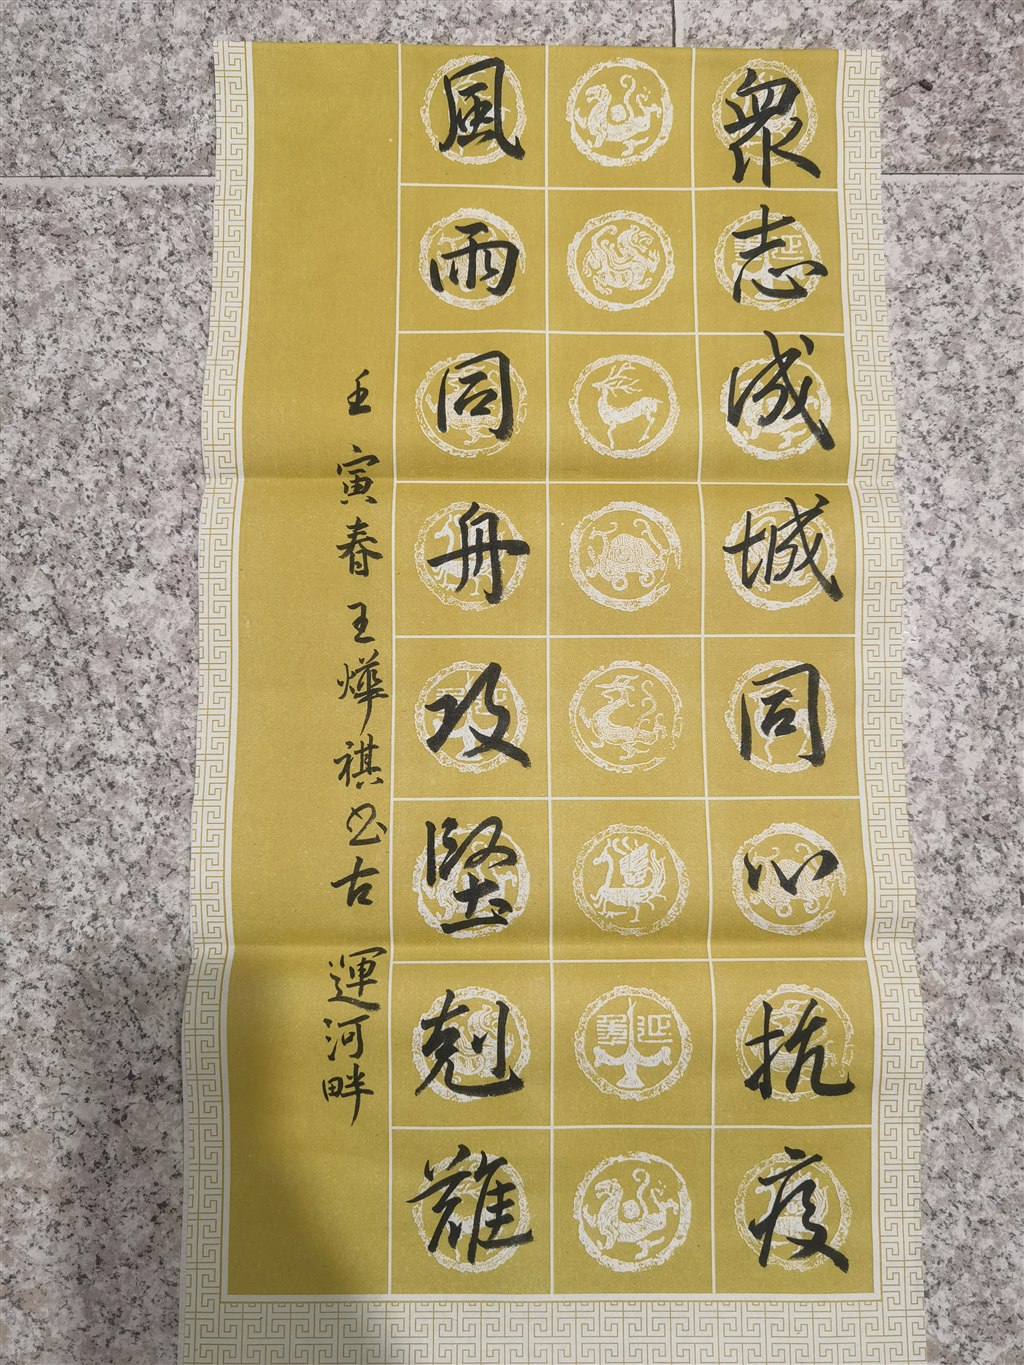 衆志成城同心抗疫
風雨同舟攻堅剋難
壬寅春王燁祺书古運河畔